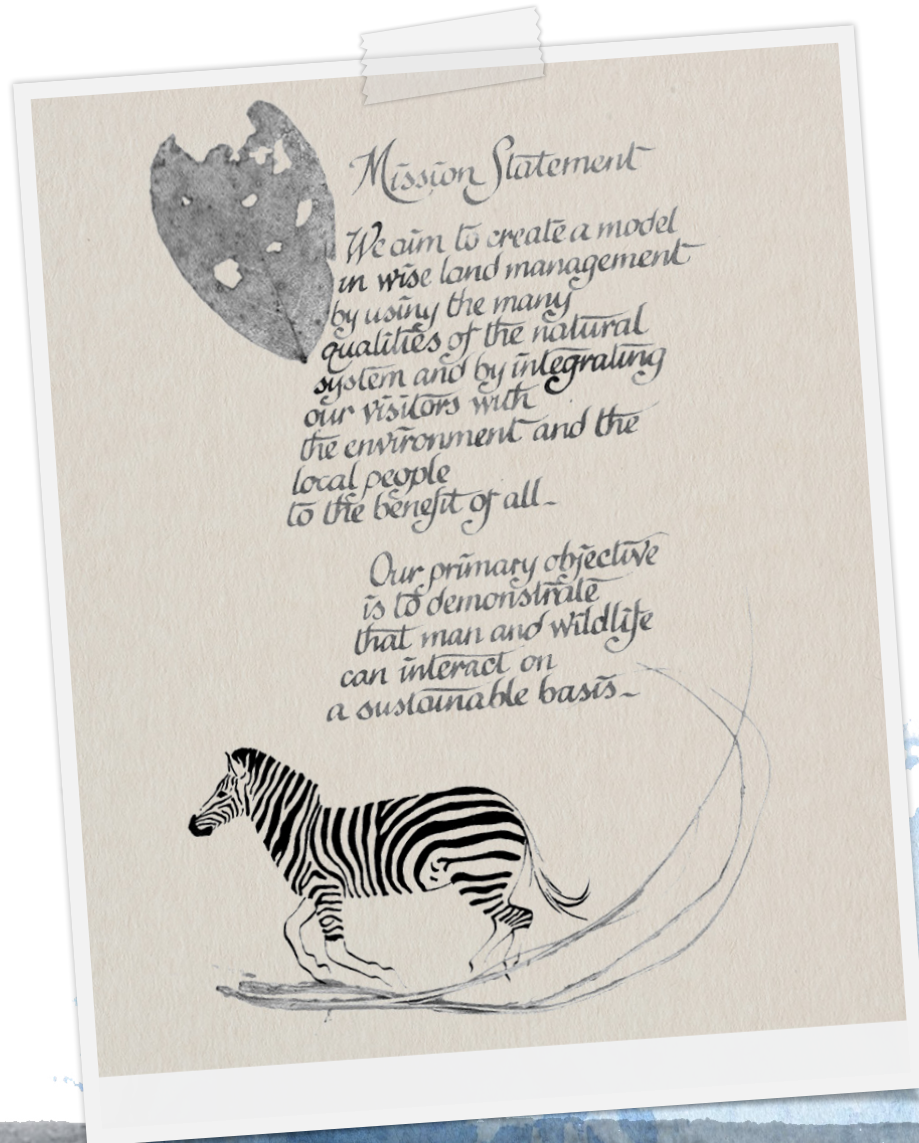 Mission Statement
We aim to create a model
in wise land management
by using the many
qualities of the natural
system and by integrating
our visitors with
the environment and the
local people
to the benefit of all_
Our primary objective
is to demonstrate
that man and wildlife
can interact on
a sustainable basis_